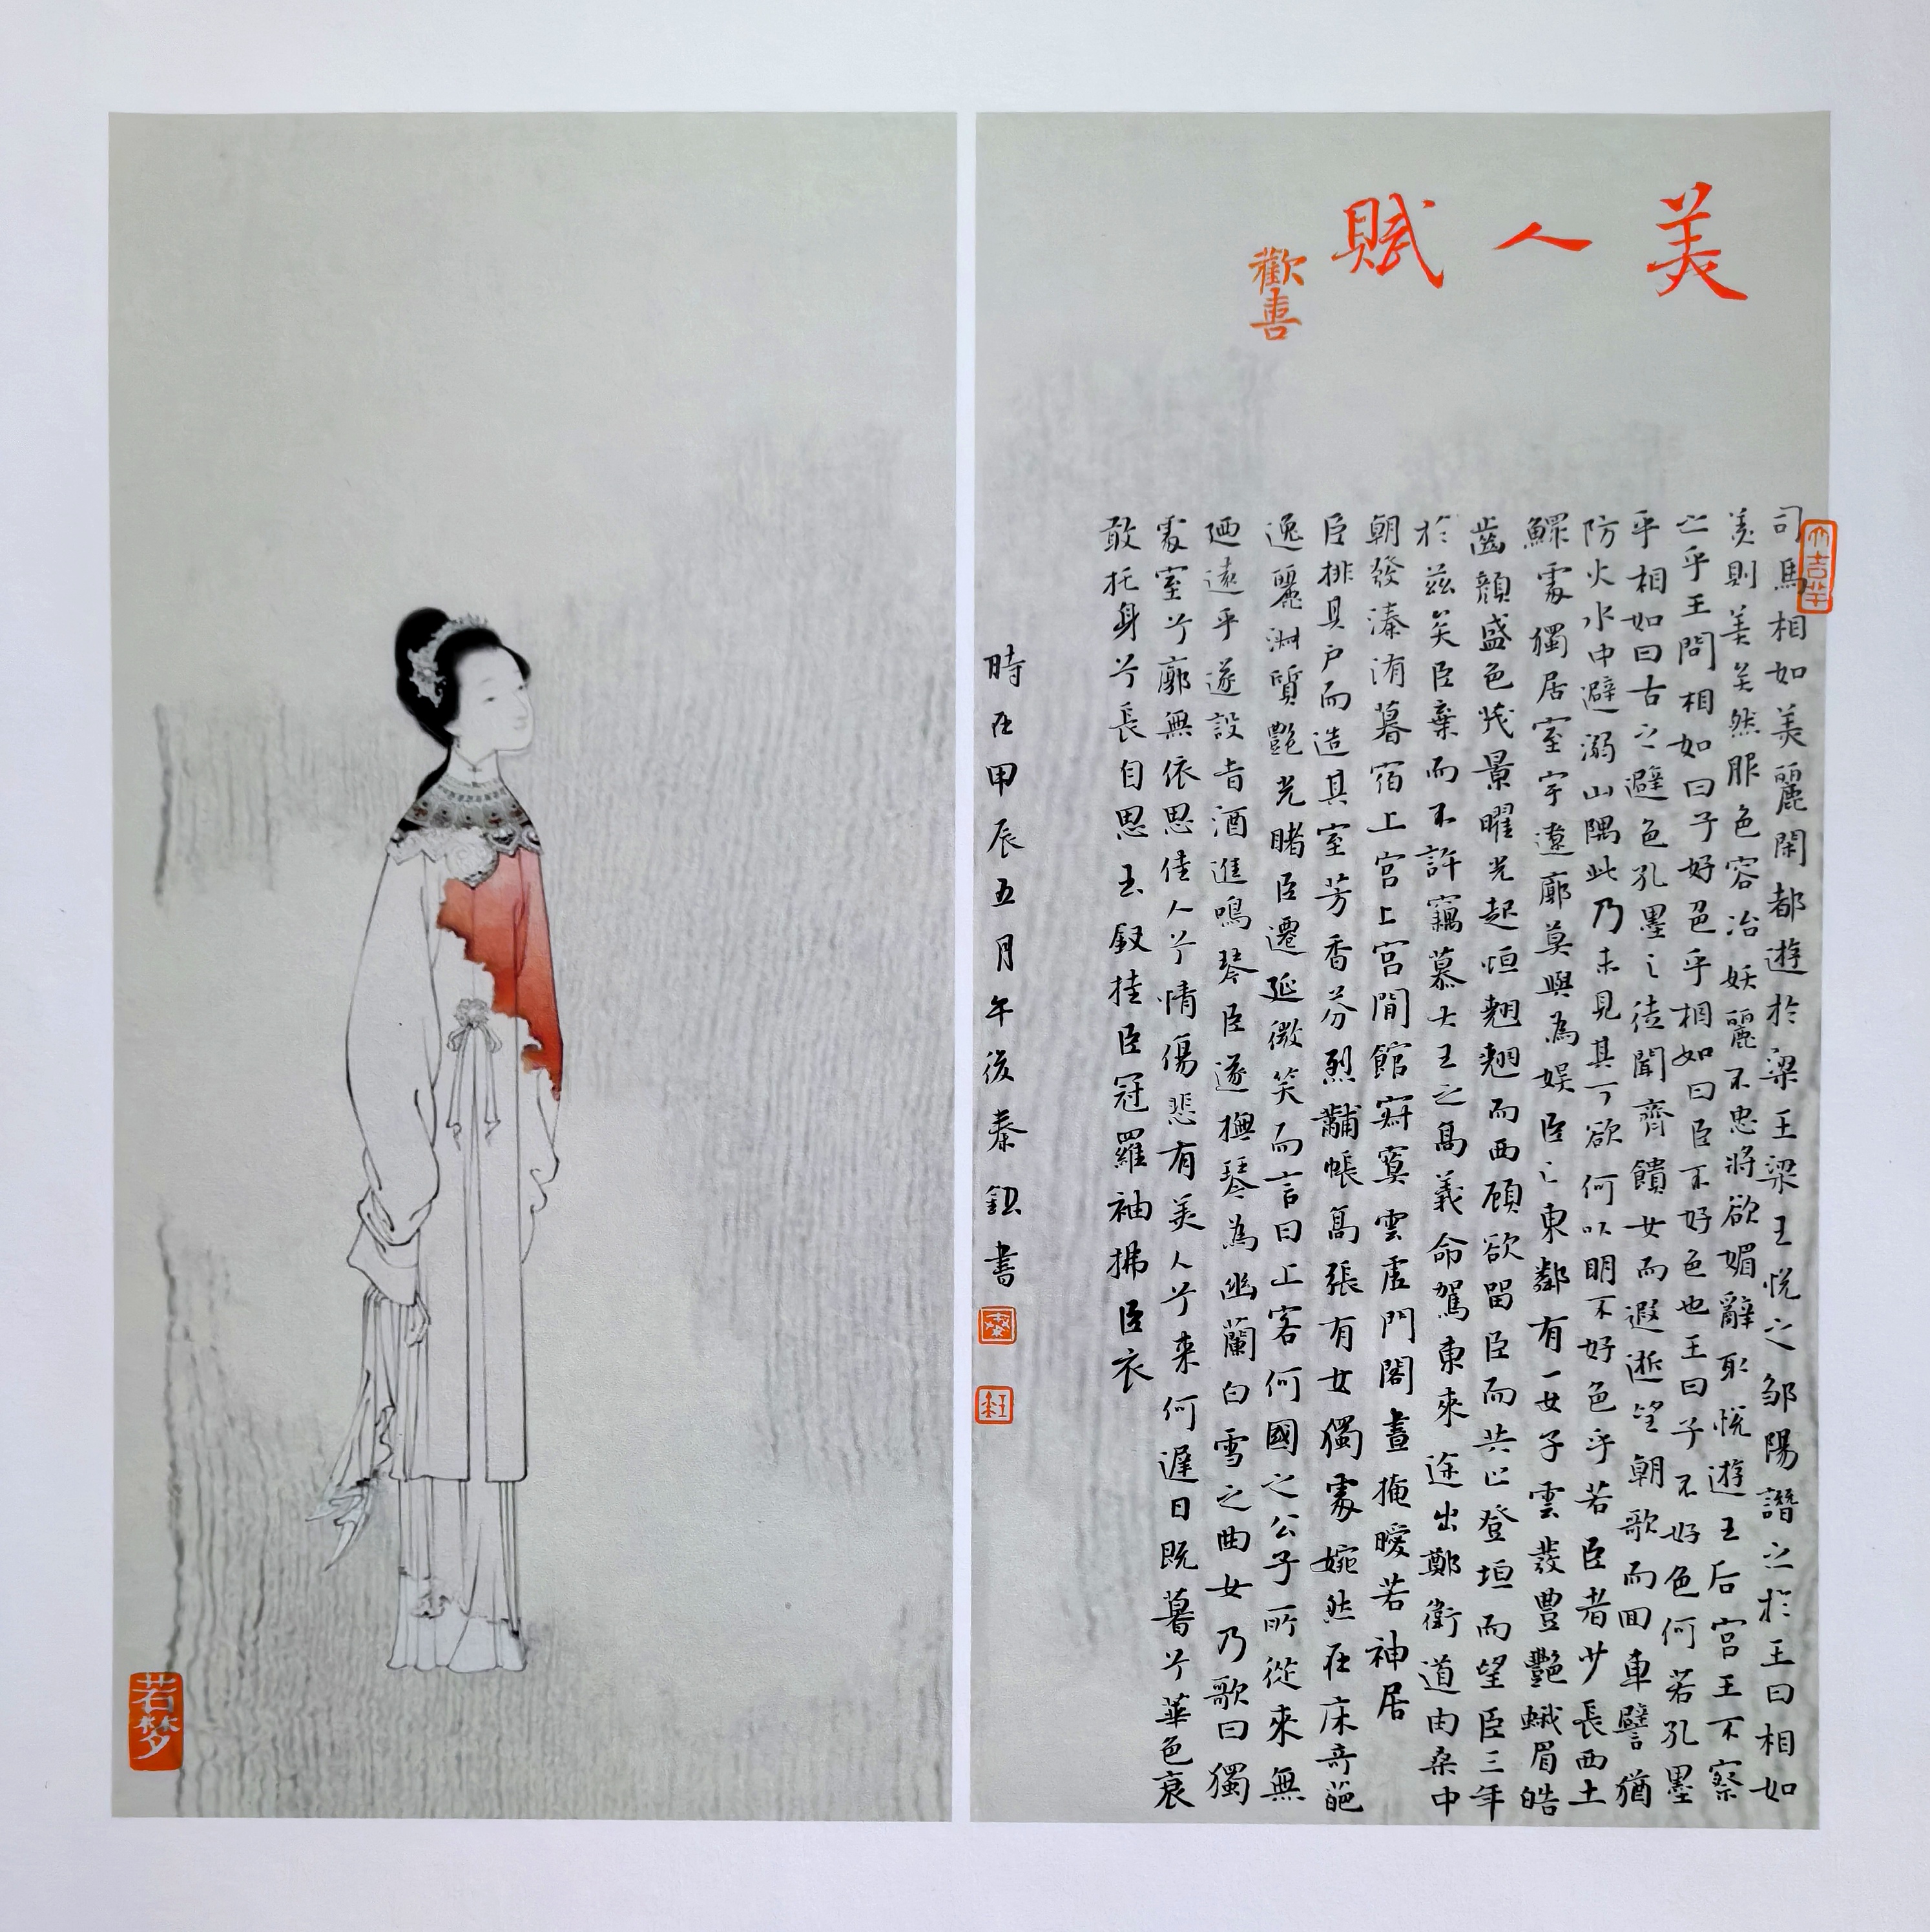 美人賦
歡喜
大吉羊
司馬相如美麗閑都遊於梁王梁王悅之鄒陽譖之於王曰相如
美則美矣然服色容冶妖麗不忠將欲媚辭取悅遊王后宮王不察
之乎王問相如曰子好色乎相如曰臣不好色也王曰子不好色何若孔墨
乎相如曰古之避色孔墨之徒聞齊饋女而遐逝望朝歌而回車譬猶
防火水中避溺山隅此乃未見其可欲何以明不好色乎若臣者少長西土
鰥處獨居室宇遼廓莫與為娛臣之東鄰有一女子雲髮豐艷蛾眉皓
齒顏盛色茂景曜光起恒翹翹而西顧欲留臣而共止登垣而望臣三年
於茲矣臣棄而不許竊慕大王之高義命駕東來途出鄭衛道由桑中
朝發溱洧暮宿上宮上宮閒館寂寞雲虛門閣晝掩曖若神居
臣排其戶而造其室芳香芬烈黼帳高張有女獨處婉然在床奇葩
逸麗淑質艷光睹臣遷延微笑而言曰上客何國之公子所從來無
廼遠乎遂設旨酒進鳴琴臣遂撫琴為幽蘭白雪之曲女乃歌曰獨
處室兮廓無依思佳人兮情傷悲有美人兮來何遲日既暮兮華色衰
敢托身兮長自思玉釵挂臣冠羅袖拂臣衣
時在甲辰五月午後秦釭書
若梦